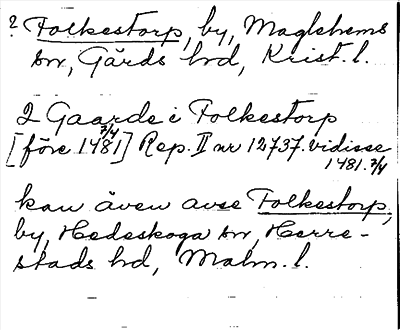 ? Folkestorp, by, Maglehems
sn, Gärds hd, Krist. l.
2 Gaarde i Folkestorp
[före 1481 7/4] Rep. II nr 12737. vidisse
1481. 7/4
kan även avse Folkestorp,
by, Hedeskoga sn, Herre-
stads hd, Malm. l.